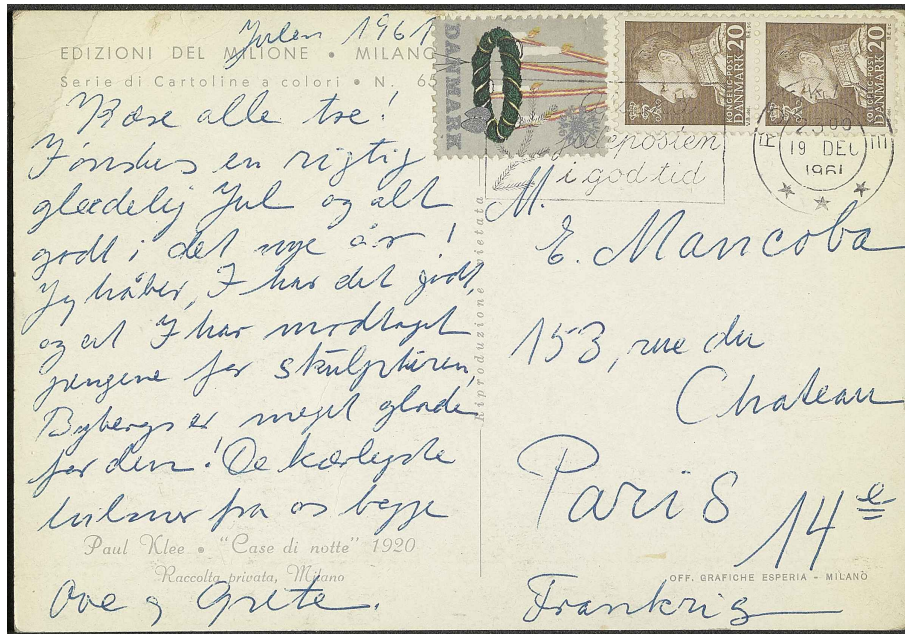 Julen 1961
EDIZIONI DEL MILIONE • MILANO
Serie di Cartoline a colori • N. 65
Kære alle tre!
Ønskes en rigtig
glædelig Jul og alt
godt i det nye år!
Jeg håber, I har det godt,
og at I har modtaget
pengene for skulpturen,
Bybergs er meget glade
for den! De kærligste
hilsner fra os begge
Paul Klee • "Case di notte" 1920
Raccolta privata, Milano
Ove og Grete.
Riproduzione vietata
DANMARK
KONGELIG POST
DANMARK
20
KONGELIG POST
DANMARK
20
juleposten
i god tid
19 DEC
1961
M.
E. Mancoba
153, rue du
Chateau
Paris
14e
OFF. GRAFICHE ESPERIA - MILANO
Frankrig